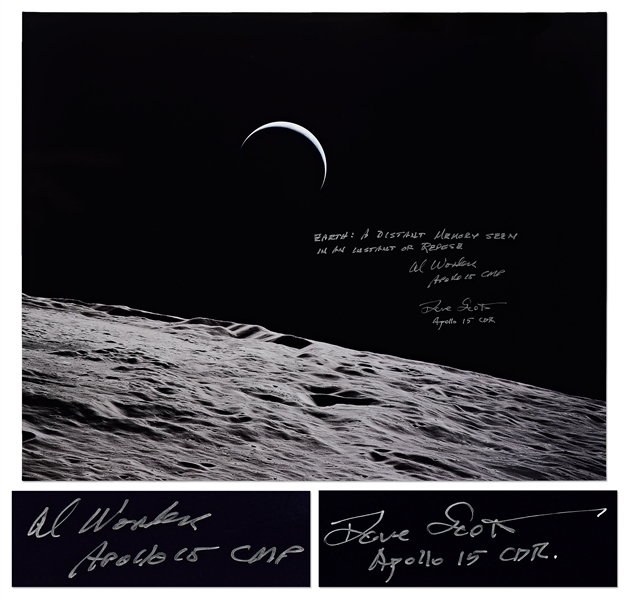 EARTH: A DISTANT MEMORY SEEN
IN AN INSTANT OF REPOSE
Al Worden
APOLLO 15 CMP
Dave Scott
Apollo 15 CDR
Al Worden
APOLLO 15 CMP
Dave Scott
Apollo 15 CDR.